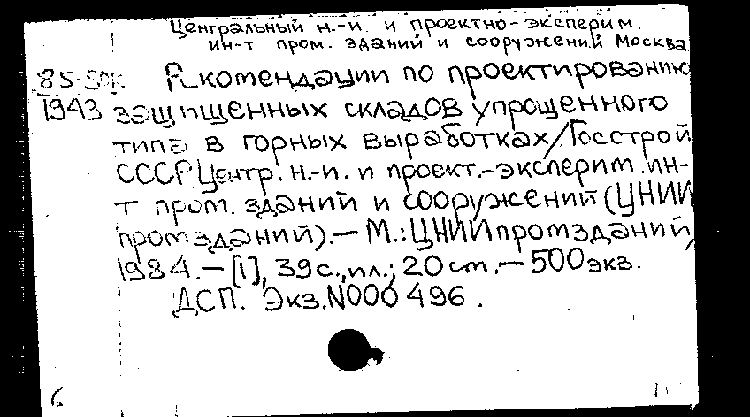 Центральный н.-и. и проектно-эксперим.
ин-т пром. зданий и сооружений Москва
Рекомендации по проектированию
1943 защищенных складов упрощенного
типа в горных выработках/Госстрой
СССР, Центр. н.-и. и проект.-эксперим. ин-
т пром. зданий и сооружений (ЦНИИ
промзданий).— М.: ЦНИИпромзданий,
1984.— [1], 39 с., ил.; 20 cm.— 500 экз.
ДСП. Экз. N000496.
6